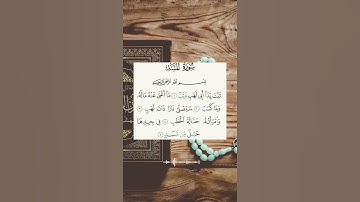 سُورَةُ المَسَدِ
بِسْمِ اللَّهِ الرَّحْمَٰنِ الرَّحِيمِ
تَبَّتْ يَدَا أَبِي لَهَبٍ وَتَبَّ ١ مَا أَغْنَىٰ عَنْهُ مَالُهُ
وَمَا كَسَبَ ٢ سَيَصْلَىٰ نَارًا ذَاتَ لَهَبٍ ٣
وَامْرَأَتُهُ حَمَّالَةَ الْحَطَبِ ٤ فِي جِيدِهَا
حَبْلٌ مِّن مَّسَدٍ ٥